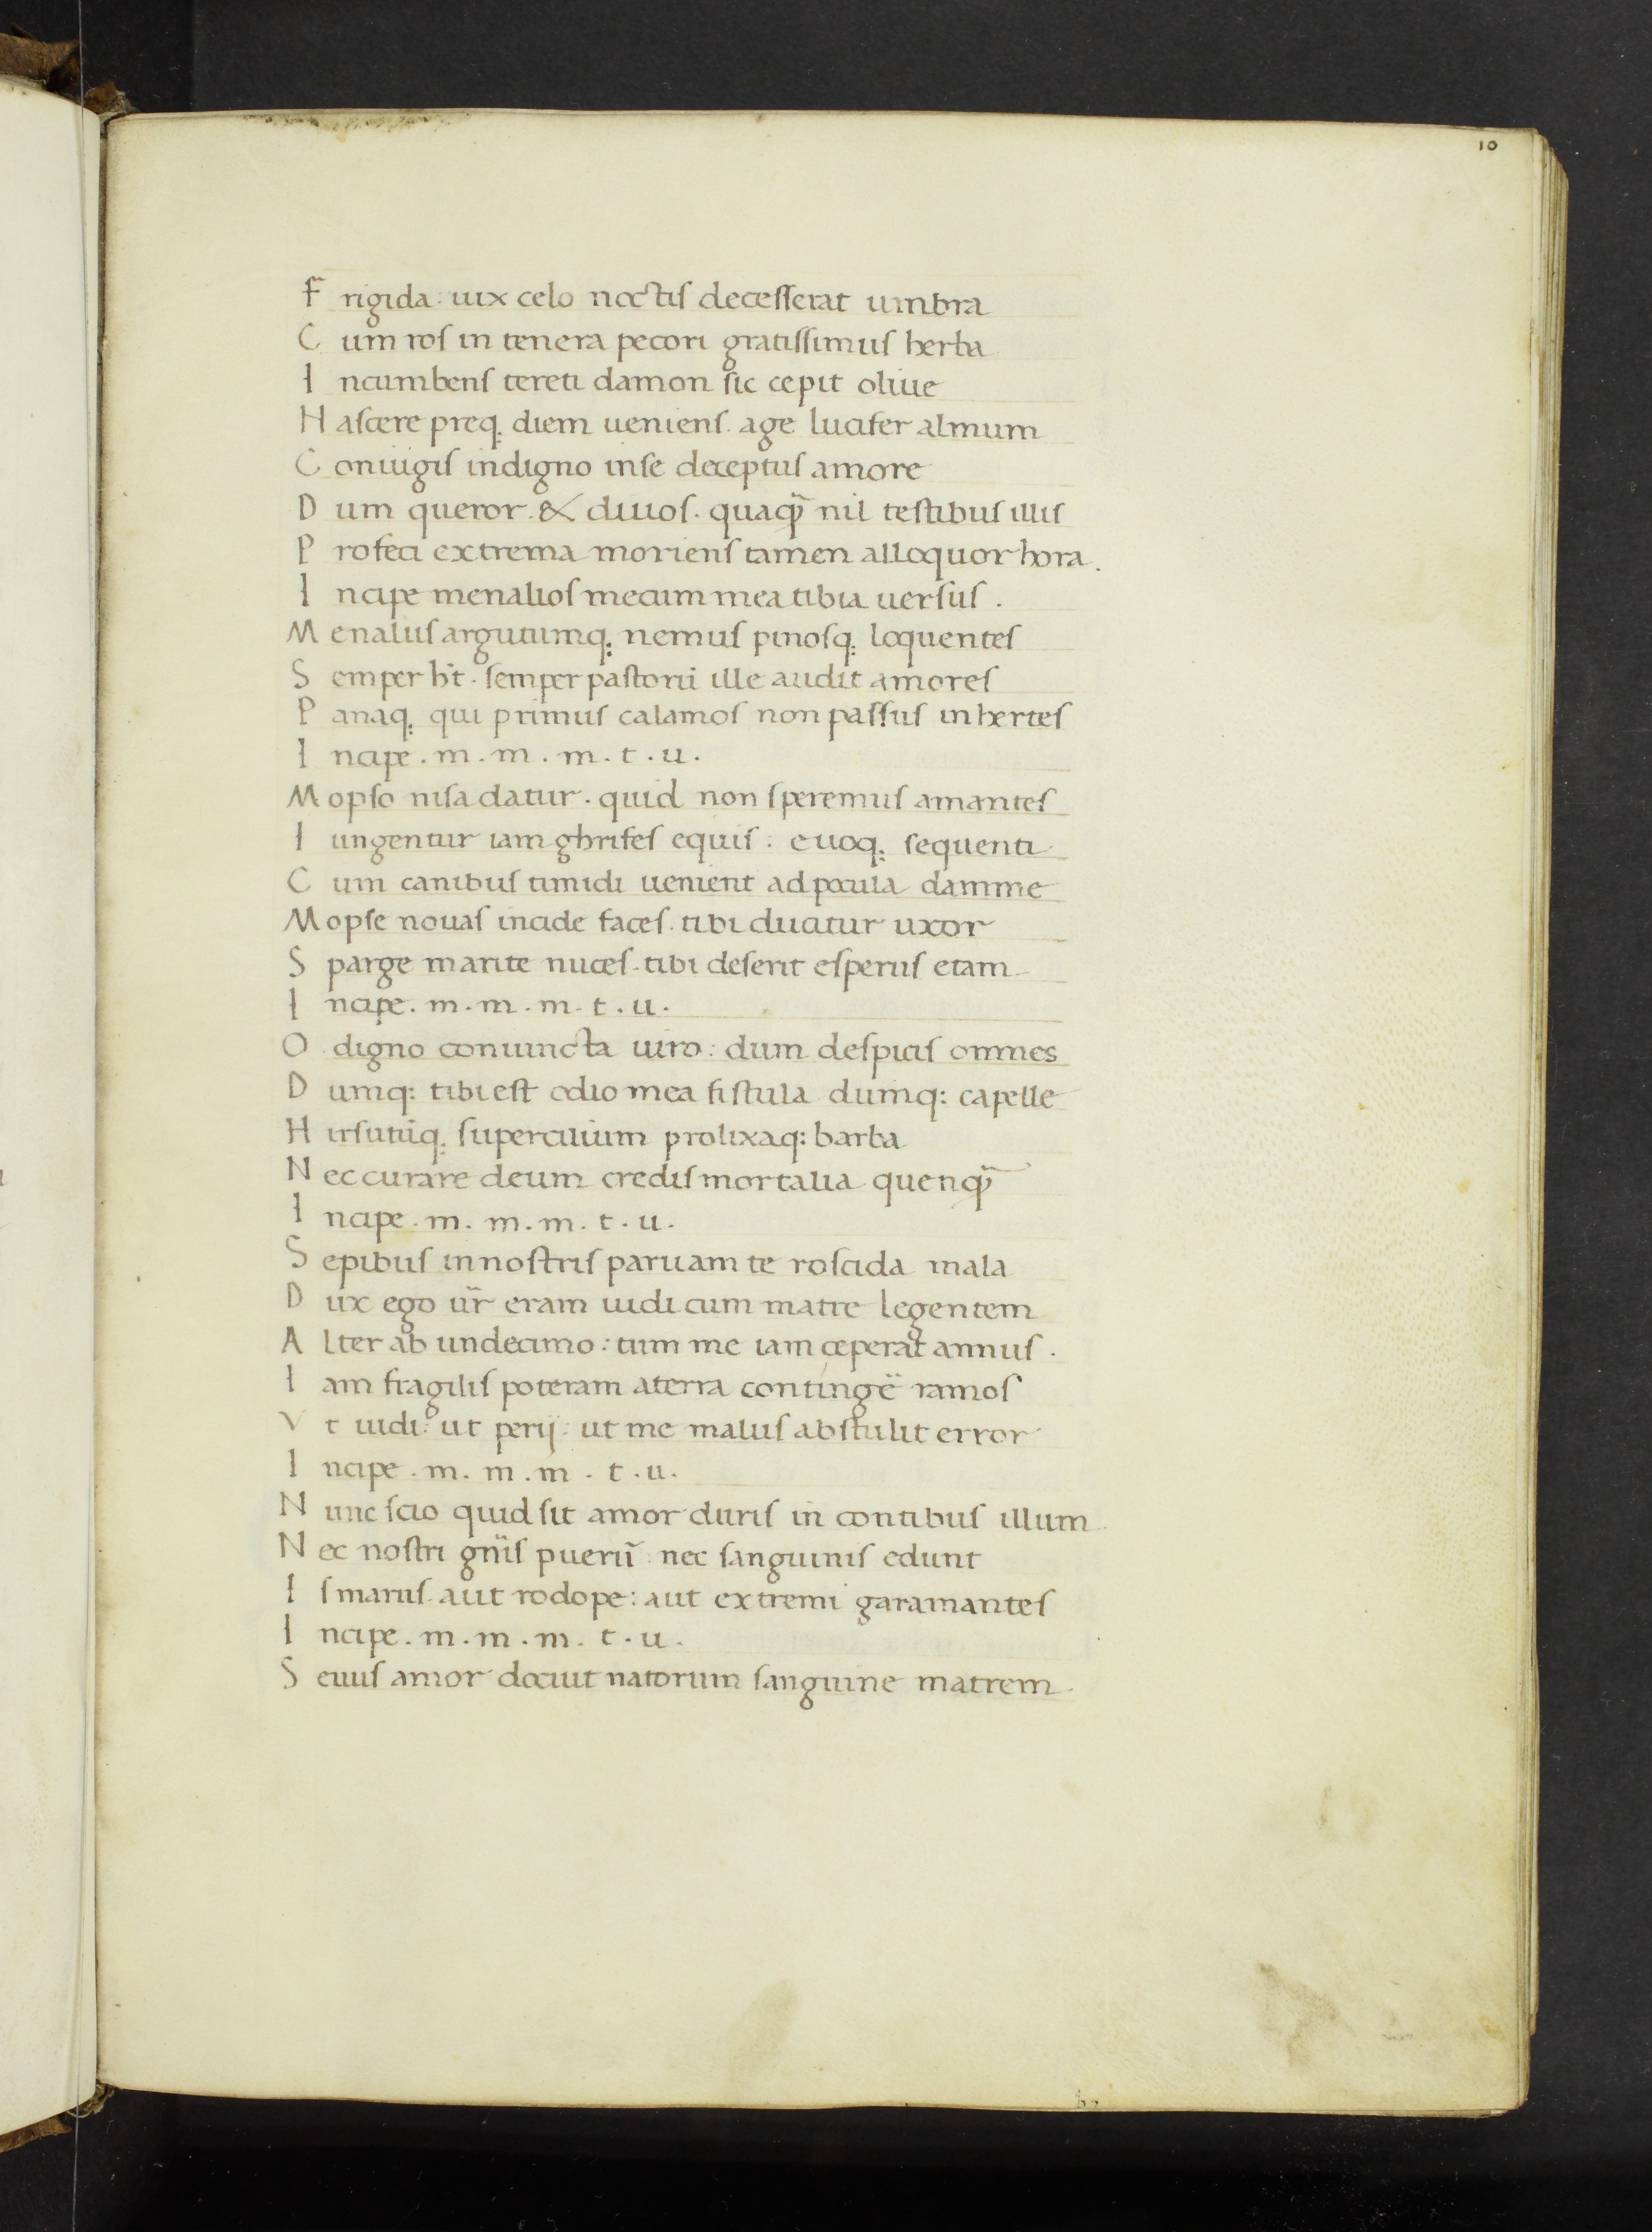 10
F rigida uix celo noctis decesserat umbra
C um ros in tenera pecori gratissimus herba
I ncumbens tereti damon sic cepit oliue
N ascere preq; diem ueniens. age lucifer almum
C oniugis indigno inse deceptus amore
D um queror. & diuos. quaq̃ nil testibus illis
P rofeci extrema moriens tamen alloquor hora.
I ncipe menalios mecum mea tibia uersus.
M enalus argutumq; nemus pinosq; loquentes
S emper ht̄. semper pastorū ille audit amores
P anaq; qui primus calamos non passus inhertes
I ncipe. m. m. m. t. u.
M opso nisa datur. quid non speremus amantes
I ungentur iam ghrifes equis: euoq; sequenti
C um canibus timidi uenient ad pocula damme
M opse nouas incide faces. tibi ducitur uxor
S parge marite nuces. tibi deserit esperus etam
I ncipe. m. m. m. t. u.
O digno coniuncta uiro: dum despicis omnes
D umq: tibi est odio mea fistula dumq: capelle
H irsutūq; supercilium prolixaq: barba
N ec curare deum credis mortalia quenq̃
I ncipe. m. m. m. t. u.
S epibus in nostris paruam te roscida mala
D ux ego ur̃ eram uidi cum matre legentem
A lter ab undecimo: tum me iam ceperat annus.
I am fragilis poteram aterra contingē ramos
V t uidi: ut perij: ut me malus abstulit error
I ncipe. m. m. m. t. u.
N unc scio quid sit amor duris in contibus illum
N ec nostri gn̄is puerū nec sanguinis edunt
I smarus. aut rodope: aut extremi garamantes
I ncipe. m. m. m. t. u.
S euus amor docuit natorum sanguine matrem